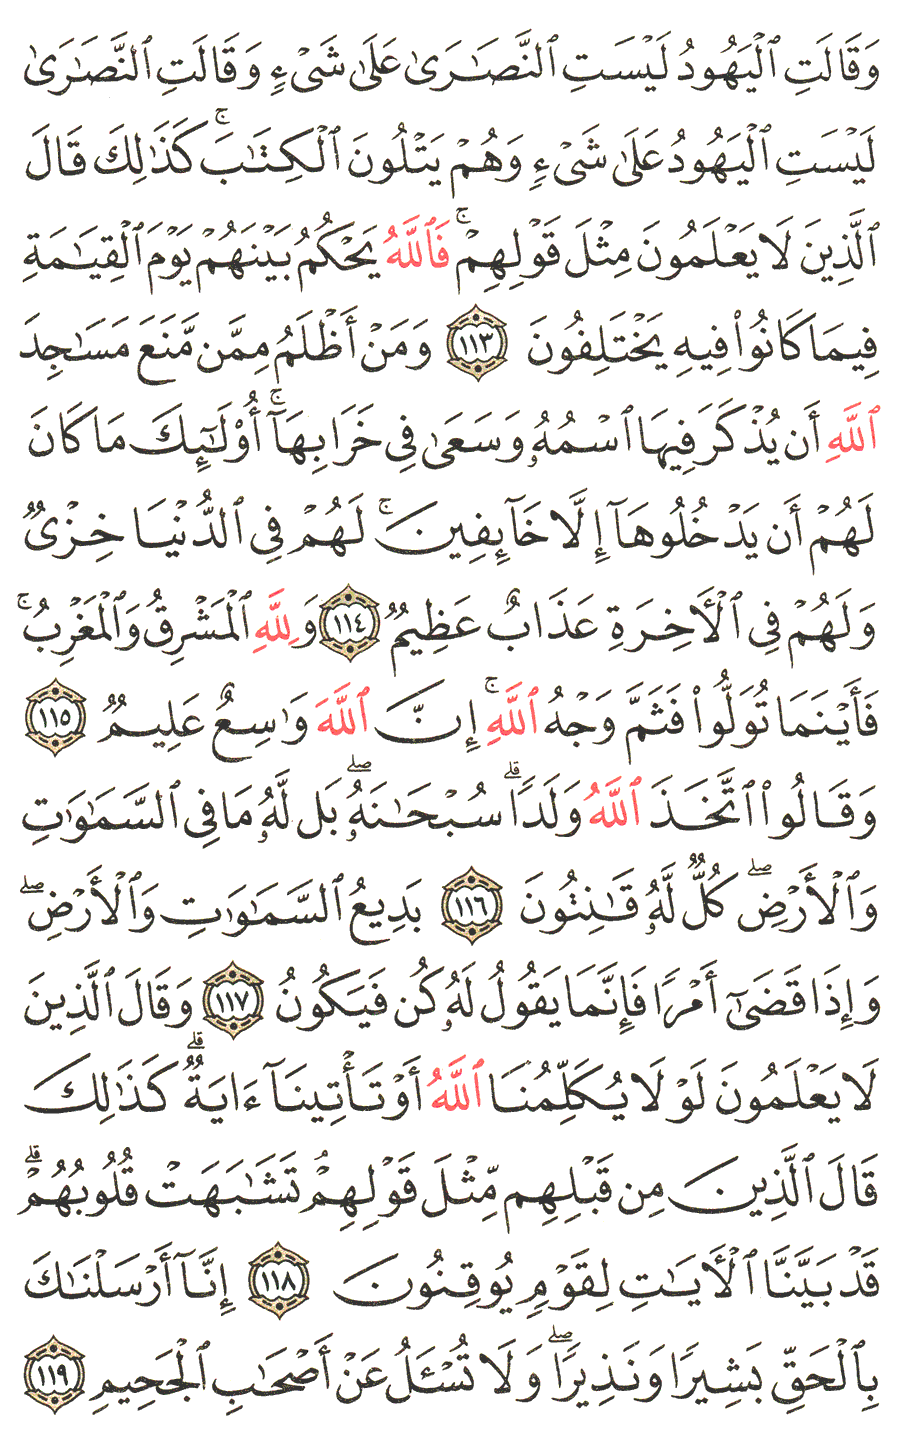 وَقَالَتِ ٱلۡيَهُودُ لَيۡسَتِ ٱلنَّصَٰرَىٰ عَلَىٰ شَيۡءٖ وَقَالَتِ ٱلنَّصَٰرَىٰ
لَيۡسَتِ ٱلۡيَهُودُ عَلَىٰ شَيۡءٖ وَهُمۡ يَتۡلُونَ ٱلۡكِتَٰبَۚ كَذَٰلِكَ قَالَ
ٱلَّذِينَ لَا يَعۡلَمُونَ مِثۡلَ قَوۡلِهِمۡۚ فَٱللَّهُ يَحۡكُمُ بَيۡنَهُمۡ يَوۡمَ ٱلۡقِيَٰمَةِ
فِيمَا كَانُواْ فِيهِ يَخۡتَلِفُونَ ١١٣ وَمَنۡ أَظۡلَمُ مِمَّن مَّنَعَ مَسَٰجِدَ
ٱللَّهِ أَن يُذۡكَرَ فِيهَا ٱسۡمُهُۥ وَسَعَىٰ فِي خَرَابِهَآۚ أُوْلَٰٓئِكَ مَا كَانَ
لَهُمۡ أَن يَدۡخُلُوهَآ إِلَّا خَآئِفِينَۚ لَهُمۡ فِي ٱلدُّنۡيَا خِزۡيٞ
وَلَهُمۡ فِي ٱلۡأٓخِرَةِ عَذَابٌ عَظِيمٞ ١١٤ وَلِلَّهِ ٱلۡمَشۡرِقُ وَٱلۡمَغۡرِبُۚ
فَأَيۡنَمَا تُوَلُّواْ فَثَمَّ وَجۡهُ ٱللَّهِۚ إِنَّ ٱللَّهَ وَٰسِعٌ عَلِيمٞ ١١٥
وَقَالُواْ ٱتَّخَذَ ٱللَّهُ وَلَدٗاۗ سُبۡحَٰنَهُۥۖ بَل لَّهُۥ مَا فِي ٱلسَّمَٰوَٰتِ
وَٱلۡأَرۡضِۖ كُلّٞ لَّهُۥ قَٰنِتُونَ ١١٦ بَدِيعُ ٱلسَّمَٰوَٰتِ وَٱلۡأَرۡضِۖ
وَإِذَا قَضَىٰٓ أَمۡرٗا فَإِنَّمَا يَقُولُ لَهُۥ كُن فَيَكُونُ ١١٧ وَقَالَ ٱلَّذِينَ
لَا يَعۡلَمُونَ لَوۡلَا يُكَلِّمُنَا ٱللَّهُ أَوۡ تَأۡتِينَآ ءَايَةٞۗ كَذَٰلِكَ
قَالَ ٱلَّذِينَ مِن قَبۡلِهِم مِّثۡلَ قَوۡلِهِمۡۘ تَشَٰبَهَتۡ قُلُوبُهُمۡۗ
قَدۡ بَيَّنَّا ٱلۡأٓيَٰتِ لِقَوۡمٖ يُوقِنُونَ ١١٨ إِنَّآ أَرۡسَلۡنَٰكَ
بِٱلۡحَقِّ بَشِيرٗا وَنَذِيرٗاۖ وَلَا تُسۡـَٔلُ عَنۡ أَصۡحَٰبِ ٱلۡجَحِيمِ ١١٩